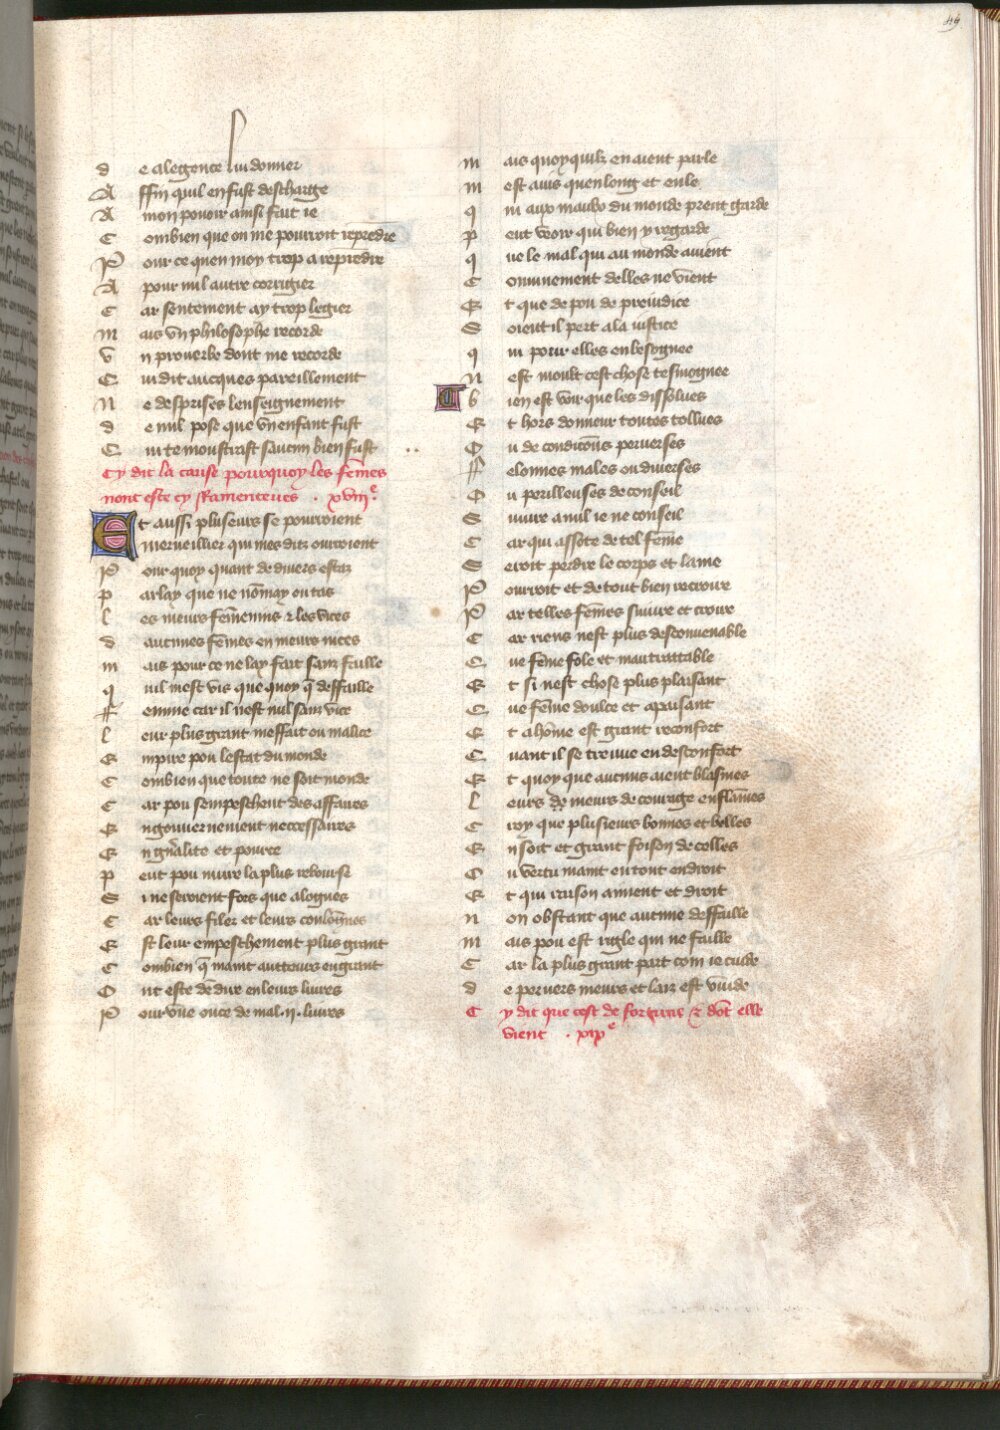 49
de alegence lui donner
Affin quil en fust descharge
A mon pouoir ainsi fait ie
Combien que on me pourroit reprēdre
Pour ce quen moy trop a reprēdre
A pour nul autre corrigier
Car sentement ay trop legier
mais vn philosophe recorde
vn prouerbe dont me recorde
Cui dit auecques pareillement
Ne desprises lenseignement
de nul pose que vn enfant fust
Cui te monstrast saucun bien fust
Cy dit la cause pourquoy les fēmes
nont este cy Ramenteues . xviij.e
Et aussi pluseurs se pourroient
merueillier qui mes ditz ourroient
Pour quoy quant de diuers estaz
parlay que ne nōmay ou tas
les meurs femenins & les vices
daucunes fēmes en meurs nices
mais pour ce ne lay fait sanz faille
quil mest vis que quoy q̄ deffaille
Femme car il nest nul sanz vice
leur plus grant meffait ou malice
Empire pou lestat du monde
Combien que toute ne soit monde
Car pou sempeschent des affaires
En gouuernement neccessaires
En gn̄alite et pource
peut pou nuire la plus rebourse
Si ne seroient fors que alogues
Car leurs filez et leurs conloignes
Est leur empeschement plus grant
Combien q̄ maint autteurs engrant
Ont este de dire en leurs liures
Pour vne once de mal .ij. liures
mais quoy quilz en aient parle
mest auis quen long et en le
qui aux maulx du monde prent garde
peut veoir qui bien y regarde
que le mal qui au monde auient
Conmunement delles ne vient
Et que de pou de preiudice
Soient il pert a la iustice
qui pour elles enbesognee
Nest moult cest chose tesmognee
bien est voir que les dissolues
Et hors donneur toutes tollues
Ou de condicōns peruerses
Felonnes males ou diuerses
Ou perilleuses de conseil
Suiure a nul ie ne conseil
Car qui assote de tel fēme
Seroit perdre le corps et lame
Pourroit et de tout bien recroire
Par telles fēmes suiure et croire
Car riens nest plus desconuenable
Cue fēme fole et mau traittable
Et si nest chose plus plaisant
Cue fēme doulce et apaisant
Et a hōme est grant reconfort
Cuant il se treuue en desconfort
Et quoy que aucuns aient blasmes
leurs de meurs de courage enflāmes
Croy que plusieurs bonnes et belles
En soit et grant foison de celles
Ou vertu maint en tout endroit
Et qui raison aiment et droit
non obstant que aucune deffaille
mais pou est rigle qui ne faille
Car la plus grant part com ie cuide
de peruers meurs et laiz est vuide
Cy dit que cest de fortune & dōt elle
vient . xixe